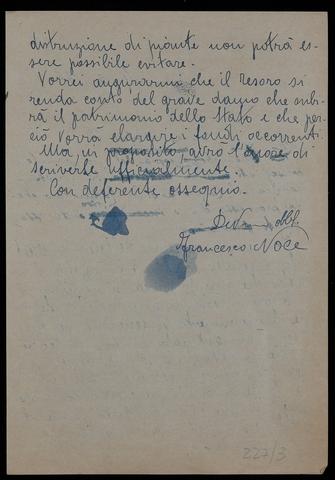 distruzione di piante non potrà es-
sere possibile evitare.
Vorrei augurarmi che il Tesoro si
renda conto del grave danno che subi-
rà il patrimonio dello Stato e che per-
ciò vorrà elargire i fondi occorrenti.
Ma, in proposito, avrò l'onore di
scriverle ufficialmente
Con deferente ossequio.
Dev. obbl.
Francesco Noce
227/3